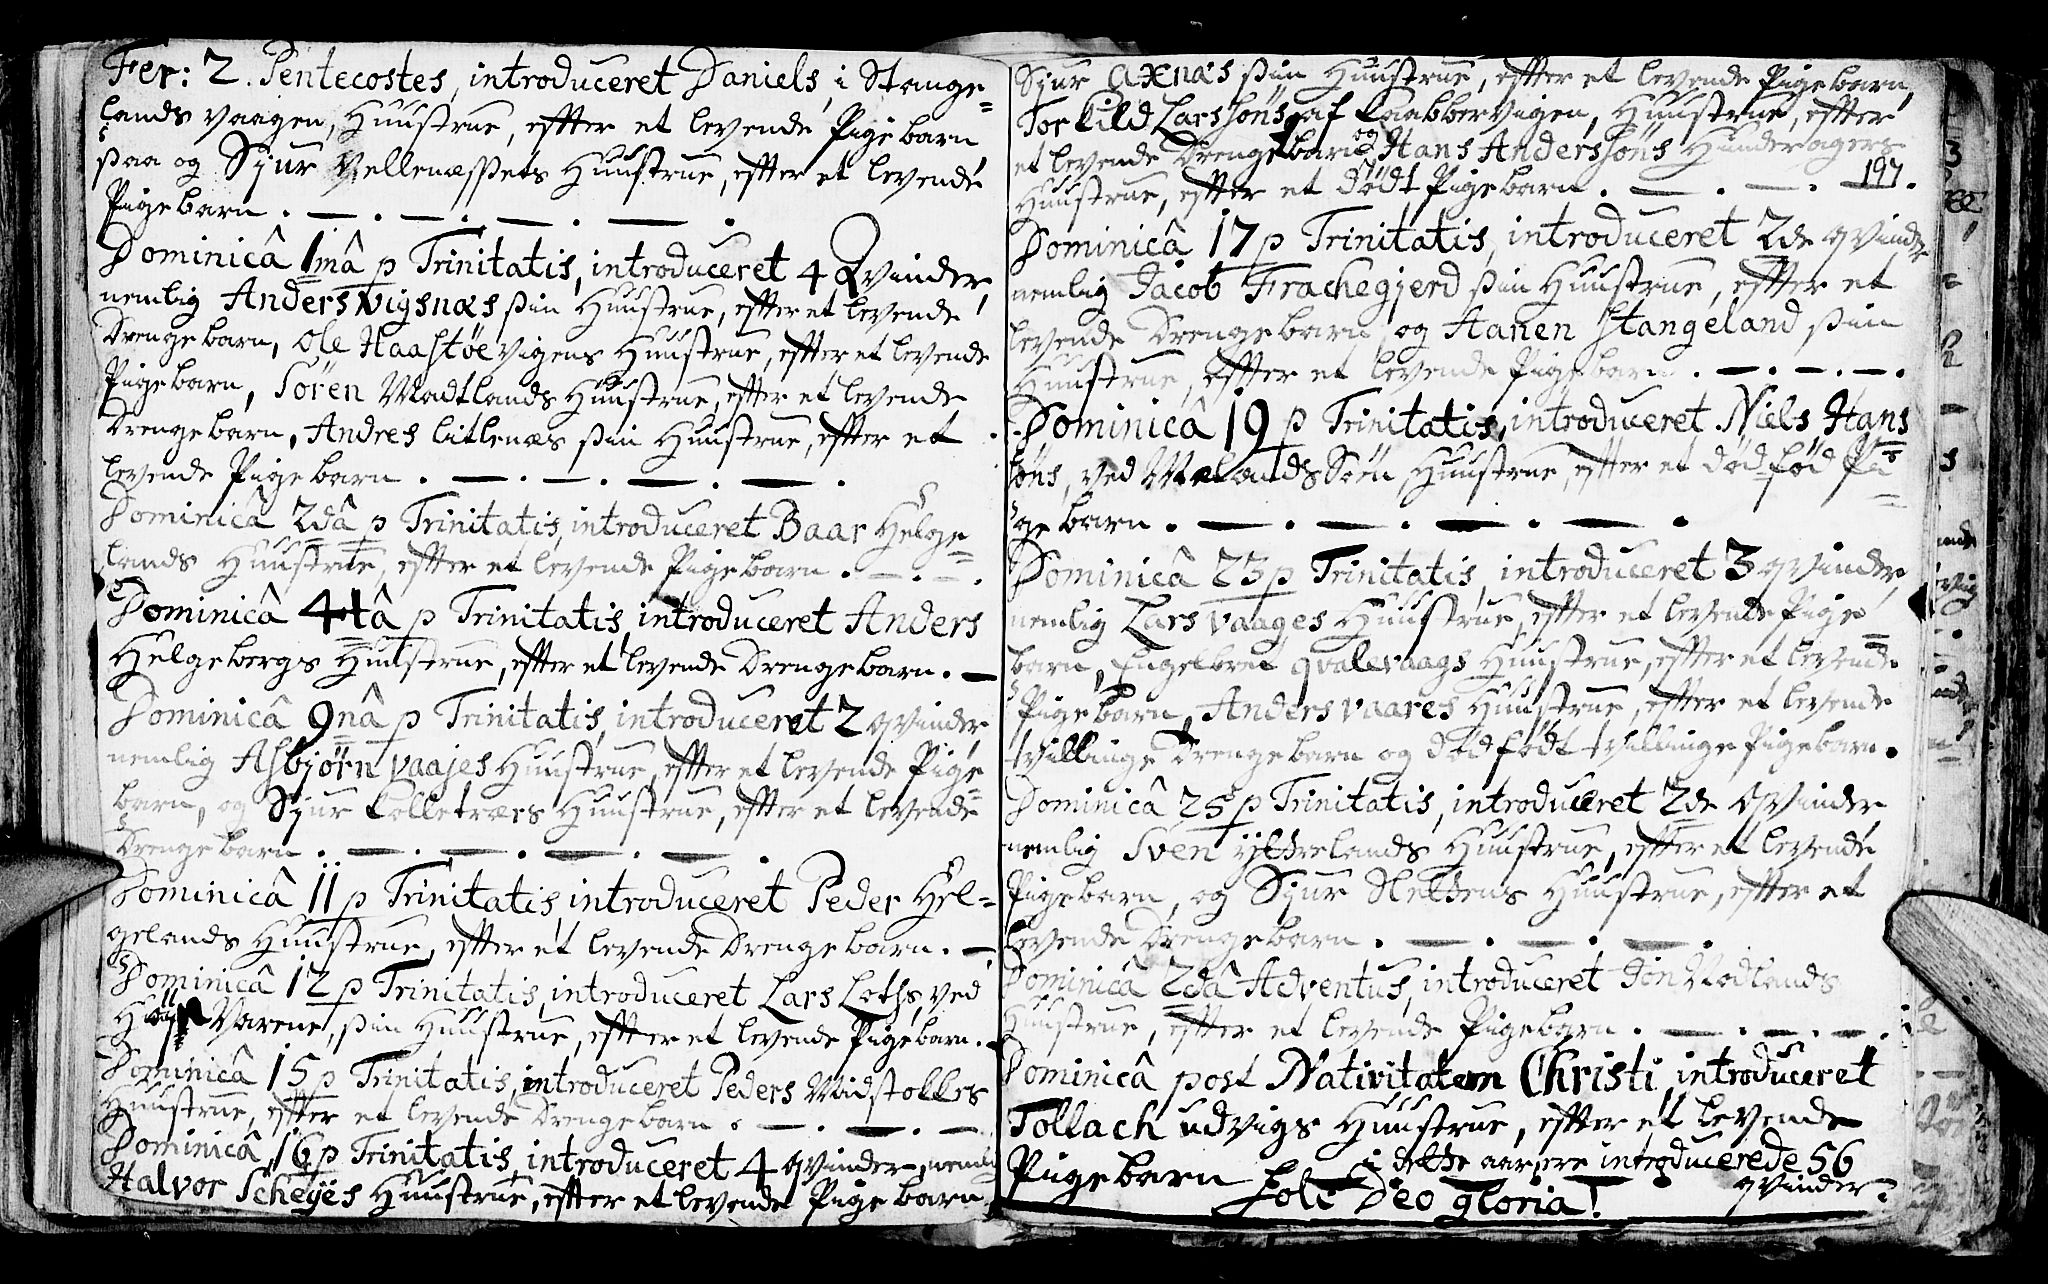 Fer: 2. Pentecostes, introduceret Daniels, i Stange=
lands vaagen, Huustrue, effter et levende Pigebarn
saa og Sjur Vellenæssets Huustrue, effter et levende
Pigebarn . — . — . — . — .
Dominicâ 1mâ p Trinitatis, introduceret 4 Qvinder,
nemlig Anders Vigsnæs siin Huustrue, effter et levende
Drengebarn, Ole Haastøevigens Huustrue, effter et levende
Pigebarn, Sören Madtlands Huustrue, effter et levende
Drengebarn, Andres Litlenæs siin Huustrue, effter et
levende Pigebarn . — . — . — . — .
Dominicâ 2dâ p Trinitatis, introduceret Baar Helge=
lands Huustrue, effter et levende Pigebarn . — . — .
Dominicâ 4tâ p Trinitatis, introduceret Anders
Helgebergs Huustrue, effter et levende Drengebarn . —
Dominicâ 9nâ p Trinitatis, introduceret 2 qvinder,
nemlig Asbjörn Vaajes Huustrue, effter et levende Pige=
barn, og Sjur Kolletræes Huustrue, effter et levende
Drengebarn . — . — . — . — .
Dominicâ 11 p Trinitatis, introduceret Peder Hel=
gelands Huustrue, effter et levende Drengebarn . —
Dominicâ 12 p Trinitatis, introduceret Lars Loths, ved
Varene, siin Huustrue, effter et levende Pigebarn .
Dominicâ 15 p Trinitatis, introduceret Peders Midstokkes
Huustrue, effter et levende Drengebarn . — . — . —
Dominicâ 16 p Trinitatis, introduceret 4 qvinder, nemlig
Halvor Scheyes Huustrue, effter et levende Pigebarn,
Sjur Axnæs siin Huustrue, effter et levende Pigebarn,
Torkild Larssöns af Kaabbervigen, Huustrue, effter
et levende Drengebarn og Hans Anderssöns Hunderagers
Huustrue, effter et dödt Pigebarn . — . — . — .
197.
Dominicâ 17 p Trinitatis, introduceret 2de qvinder
nemlig Jacob Frachegjerd siin Huustrue, effter et
levende Drengebarn, og Aanen Stangeland siin
Huustrue, effter et levende Pigebarn . — . — . — .
Dominicâ 19 p Trinitatis, introduceret Niels Hans
söns, ved Mælands Söen, Huustrue, effter et död föd Pi=
gebarn . — . — . — . — .
Dominicâ 23 p Trinitatis, introduceret 3 qvinder,
nemlig Lars Vaages Huustrue, effter et levende Pige=
barn, Engelbret qvalevaags Huustrue, effter et levende
Pigebarn, Anders Vaares Huustrue, effter et levende
tvillinge Drengebarn og dödfödt tvillinge Pigebarn .
Dominicâ 25 p Trinitatis, introduceret 2de Qvinder
nemlig Sven ÿtrelands Huustrue, effter et levende
Pigebarn, og Sjur Nettens Huustrue, effter et
levende Drengebarn . — . — . — .
Dominicâ 2dâ Adventus, introduceret Jon Modlands
Huustrue, effter et levende Pigebarn . — . — . — .
Dominicâ post Nativitatem Christi, introduceret
Tollach Udvigs Huustrue, effter et levende
Pigebarn
i dette aar ere introducerede 56
qvinder.
Soli Deo gloria!